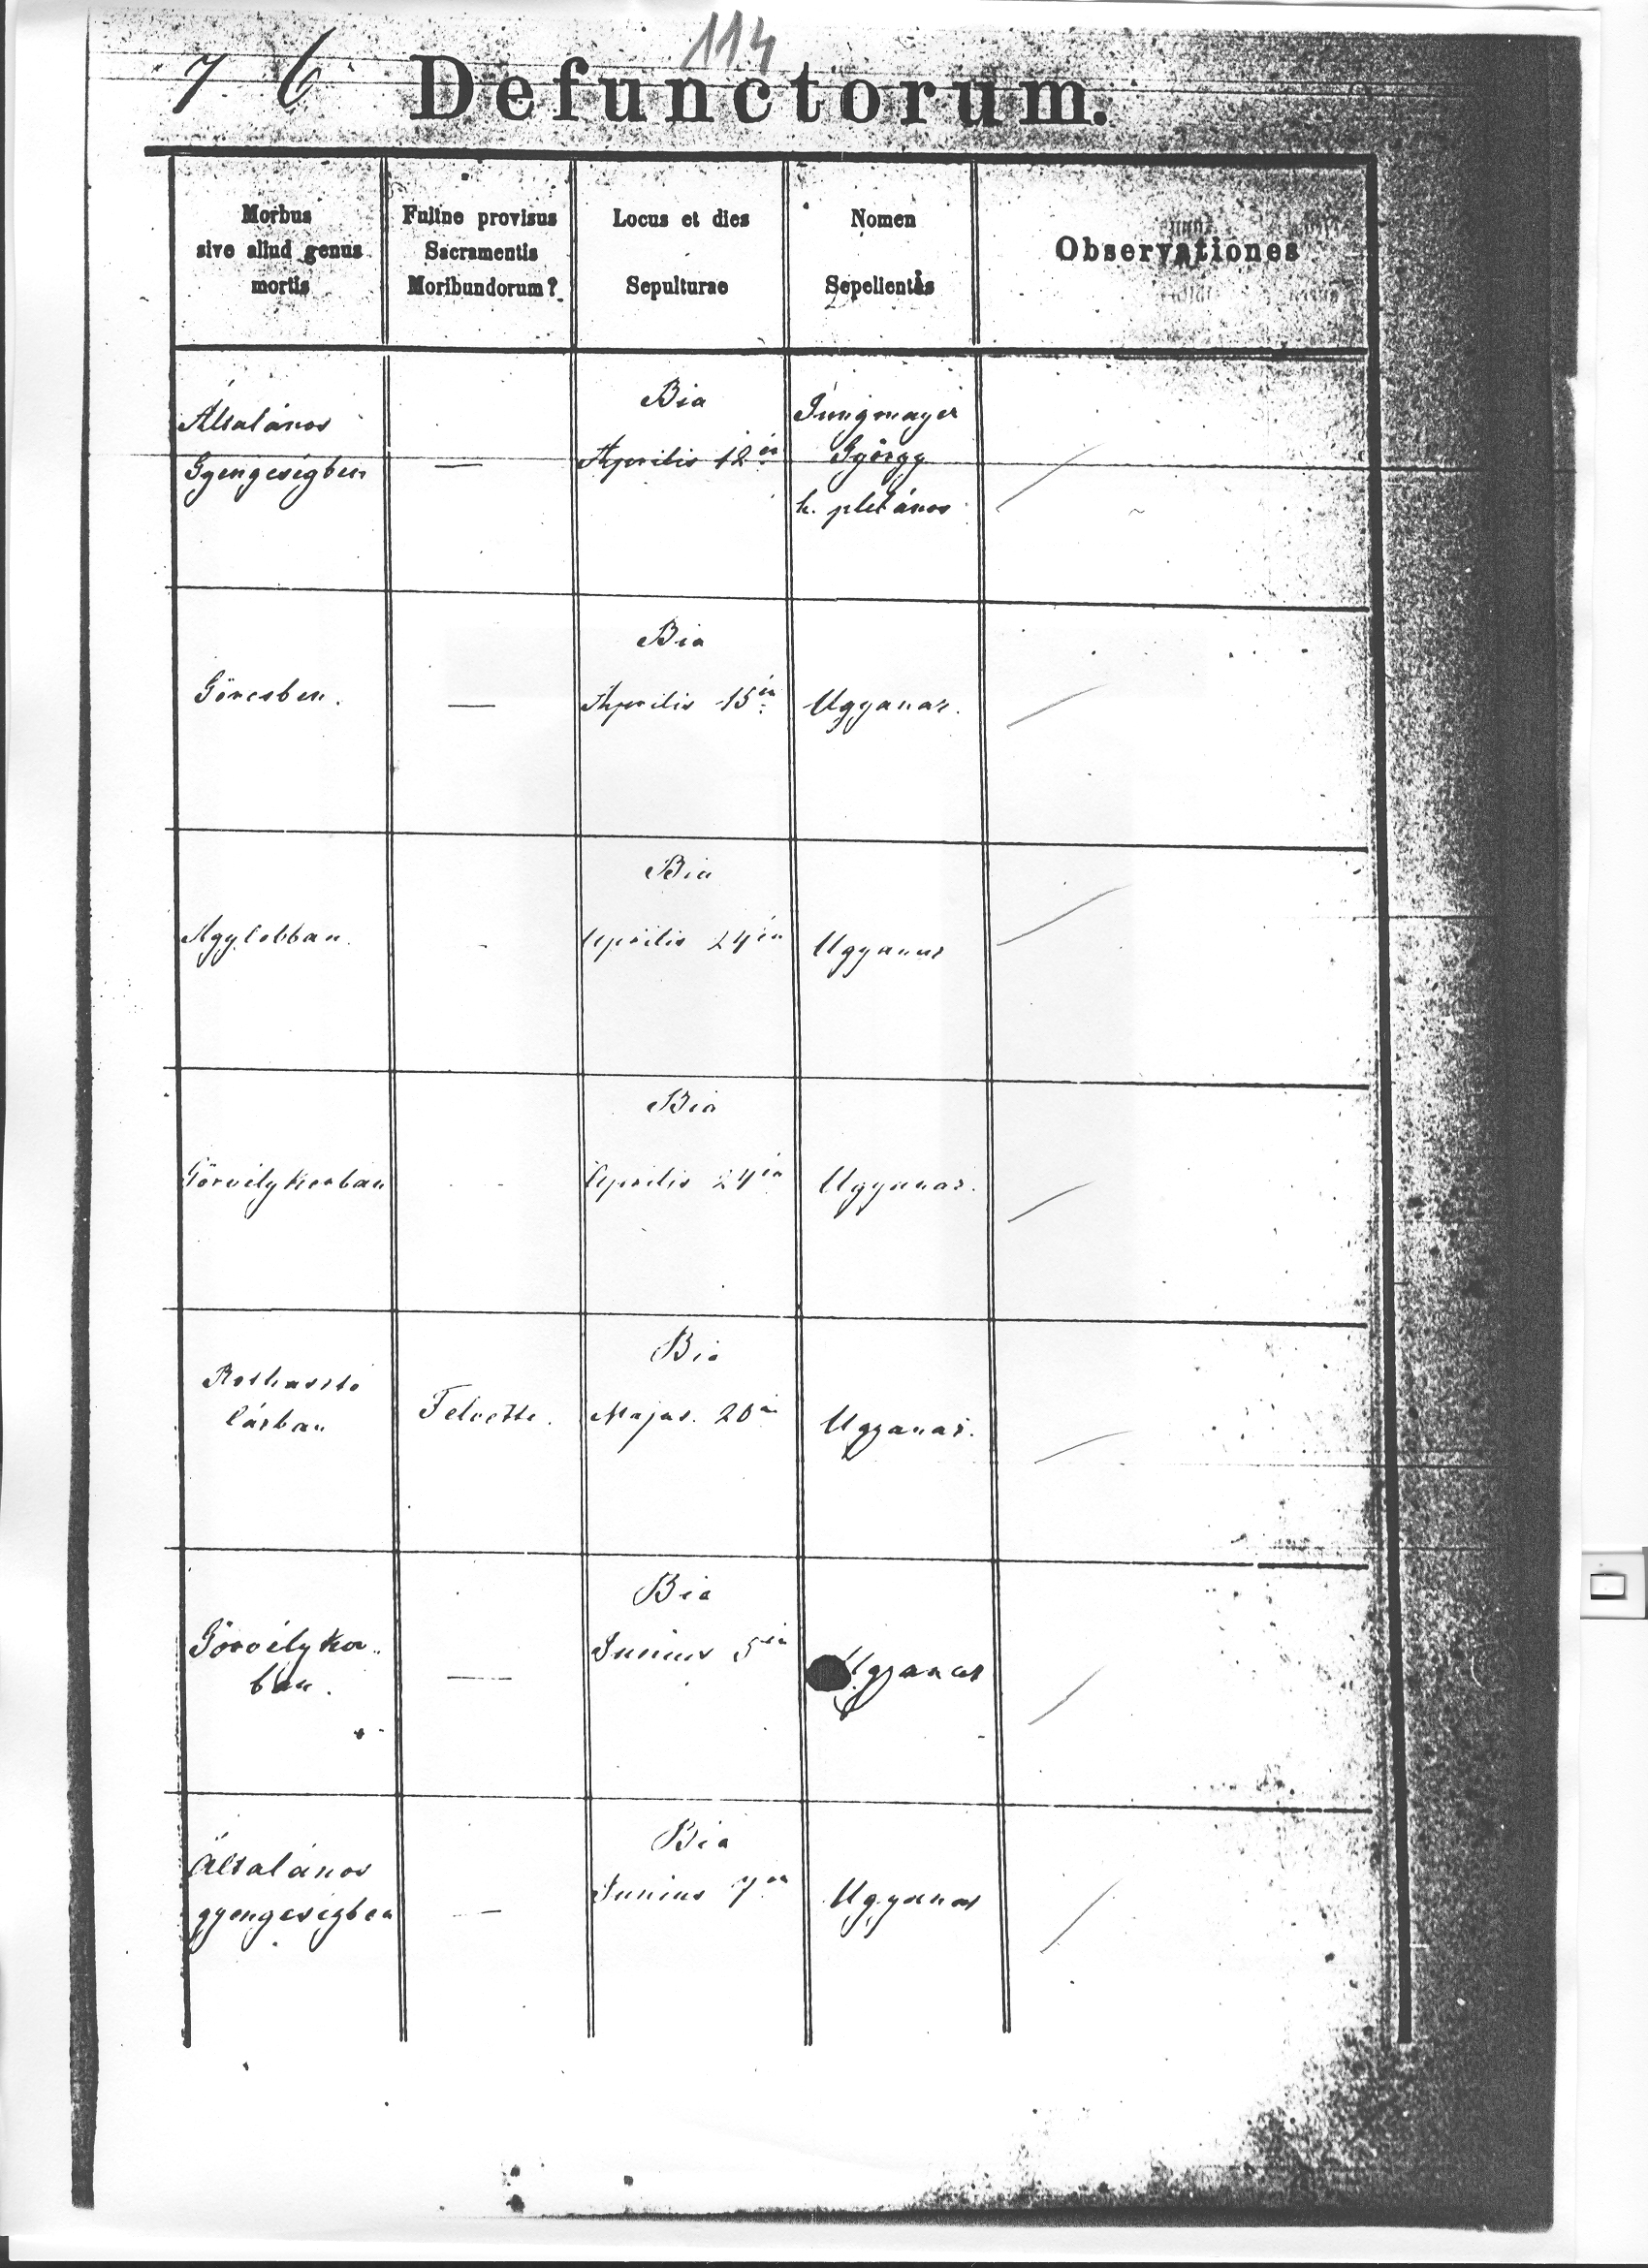 114
7 6 Defunctorum.
Morbus
sive aliud genus
mortis
Fuitne provisus
Sacramentis
Moribundorum?
Locus et dies
Sepulturae
Nomen
Sepelientis
Observationes
Általános
Gyengeségben
—
Bia
Aprilis 12én
Jungmayer
György
h. plebános
Görcsben.
—
Bia
Aprilis 15én
Ugyanaz.
Agylobban.
Bia
Aprilis 24én
Ugyanaz
Görvélykorban
Bia
Aprilis 24én
Ugyanaz.
Rothasztó
lázban
Felvette.
Bia
Majus. 20án
Ugyanaz.
Görvélykor
ban.
—
Bia
Junius 5én
Ugyanaz
Általános
gyengeségben
—
Bia
Junius 7én
Ugyanaz